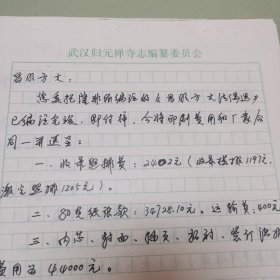 武汉归元禅寺志编纂委员会
昌明方丈：
您委托隆非所编注的《昌明方丈法偶选》
已编注完毕，即付梓，今将印刷费用和厂家合
同一并送呈：
一、收录照排费：2402元（收录植排1197元，
激光照排1205元）。
二、80克纸张款：34728.10元。运输费：400元
三、内芯、封面、插页、彩衬、装订
费用为44000元。